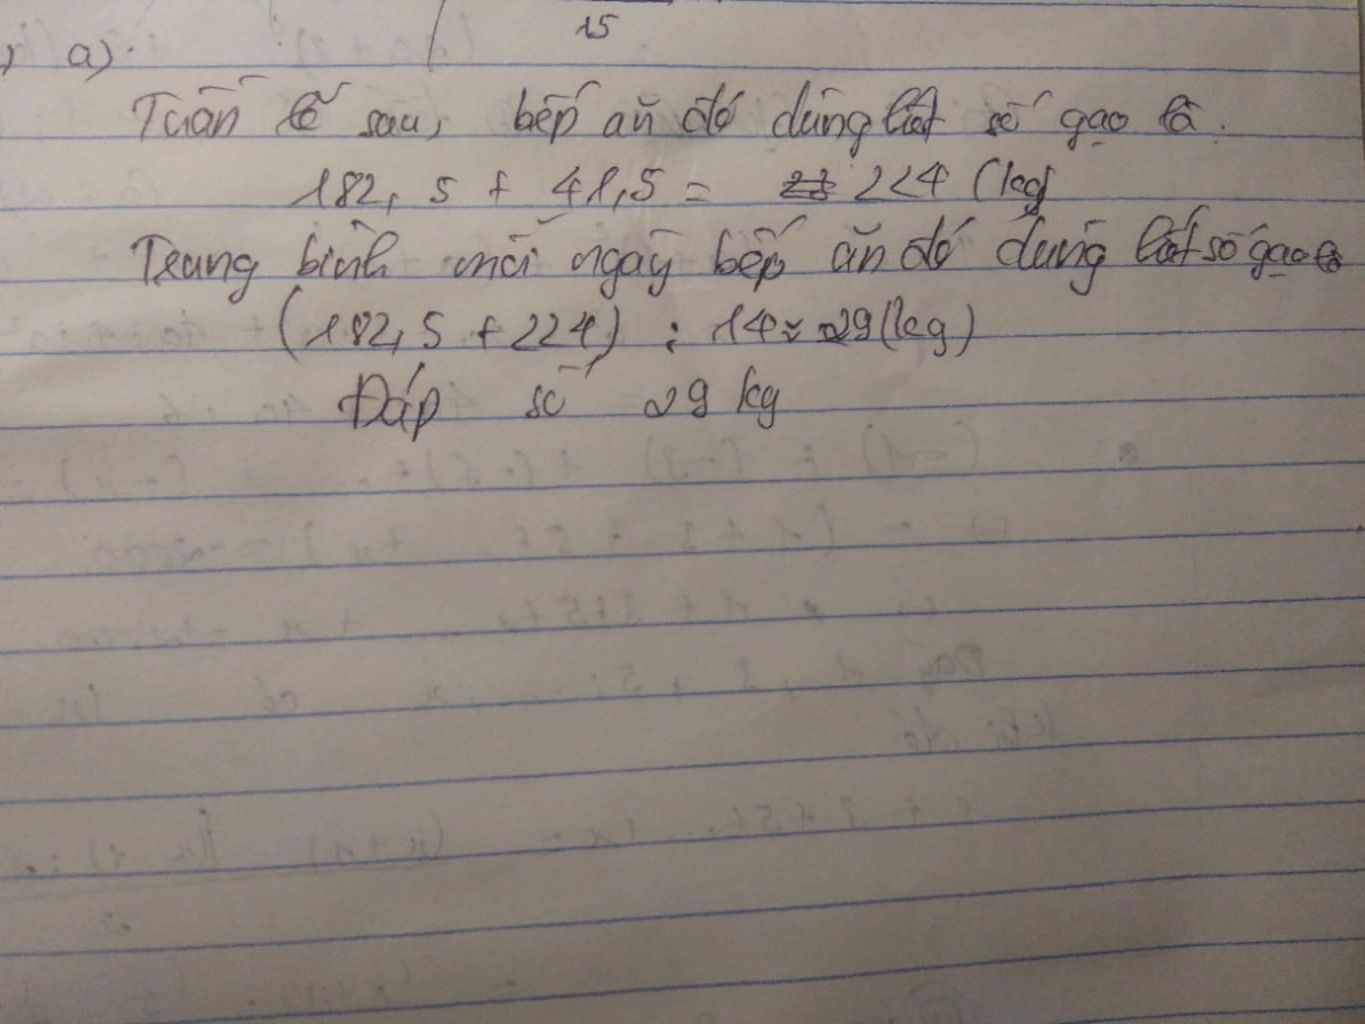 15
a)
Tuần lễ sau, bếp ăn đó dùng hết số gạo là.
182,5 + 41,5 = 224 (kg)
Trung bình mỗi ngày bếp ăn đó dùng hết số gạo là
(182,5 + 224) : 14 ≈ 29 (kg)
Đáp số 29 kg